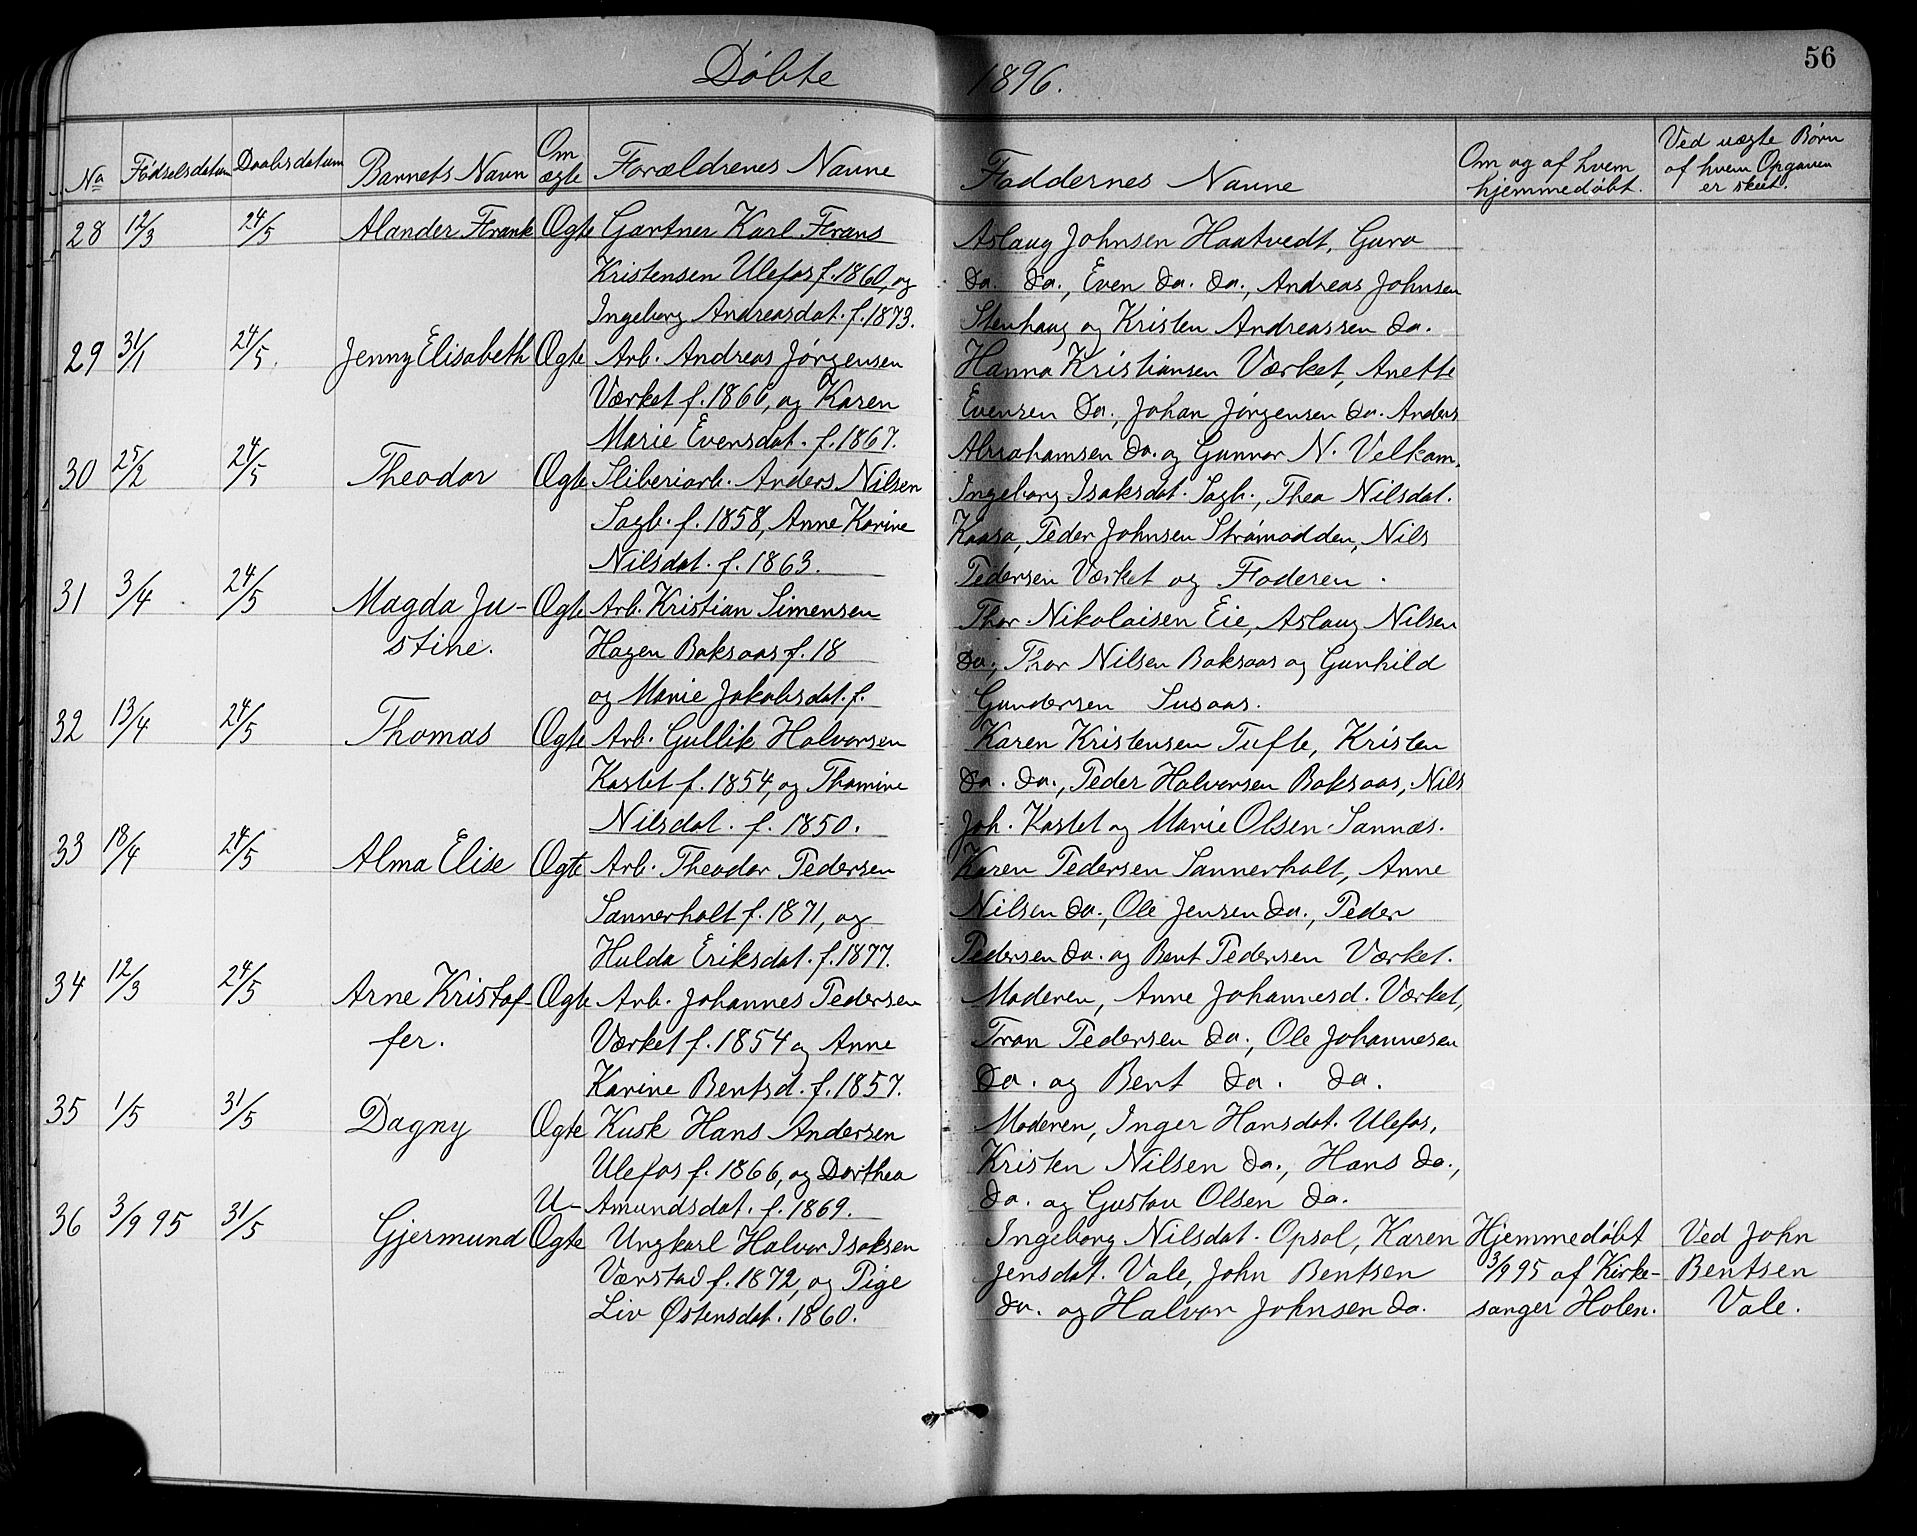 56
Døbte 1896.
No Fødselsdatum Daabsdatum Barnets Navn Om ægte Forældrenes Navne Faddernes Navne Om og af hvem hjemmedøbt. Ved uægte Børn af hvem Opgaven er skeet.
28 12/3 24/5 Alander Frank Ægte Gartner Karl Frans Aslaug Johnsen Haatvedt, Guro
Kristensen Ulefos f. 1860, og Do. Do., Even Do. Do., Andreas Johnsen
Ingeborg Andreasdat. f. 1873. Stenhaug og Kristen Andreassen Do.
29 31/1 24/5. Jenny Elisabeth Ægte Arb. Andreas Jørgensen Hanna Kristiansen Værket, Anette
Værket f. 1866, og Karen Evensen Do., Johan Jørgensen Do. Anders
Marie Evensdat. f. 1867. Abrahamsen Do. og Gunnar N. Velkam.
30 25/2 24/5 Theodor Ægte Sliberiarb. Anders Nilsen Ingeborg Isaksdat. Sagb., Thea Nilsdat.
Sagb. f. 1858, Anne Karine Kaasa, Peder Johnsen Strømodden, Nils
Nilsdat. f. 1863. Pedersen Værket og Faderen.
31 3/4 24/5 Magda Ju- Ægte Arb. Kristian Simensen Thor Nikolaisen Eie, Aslaug Nilsen
stine. Hagen Baksaas f. 18 Do., Thor Nilsen Baksaas og Gunhild
og Marie Jakobsdat. f. Gundersen Susaas.
32 13/4 24/5 Thomas Ægte Arb. Gullik Halvorsen Karen Kristensen Tufte, Kristen
Kastet f. 1854, og Thomine Do. Do., Peder Halvorsen Baksaas, Nils
Nilsdat. f. 1850. Joh. Kastet og Marie Olsen Sannæs.
33 18/4 24/5 Alma Elise Ægte Arb. Theodor Pedersen Karen Pedersen Sannerholt, Anne
Sannerholt f. 1871, og Nilsen Do., Ole Jensen Do., Peder
Hulda Eriksdat. f. 1877. Pedersen Do. og Bent Pedersen Værket.
34 12/3 24/5 Arne Kristof- Ægte Arb. Johannes Pedersen Moderen, Anne Johannesd. Værket,
fer. Værket f. 1854 og Anne Tron Pedersen Do., Ole Johannesen
Karine Bentsd. f. 1857. Do. og Bent Do. Do.
35 1/5 31/5 Dagny Ægte Kusk Hans Andersen Moderen, Inger Hansdat. Ulefos,
Ulefos f. 1866, og Dorthea Kristen Nilsen Do., Hans Do.,
Amundsdat. f. 1869. Do. og Gustav Olsen Do.
36 3/9 95 31/5 Gjermund U-Ægte Ungkarl Halvor Isaksen Ingeborg Nilsdat. Opsal, Karen Hjemmedøbt Ved John
Værstad f. 1872, og Pige Jensdat. Vale, John Bentsen 3/9 95 af Kirke- Bentsen
Liv Østensdat. 1860. Do. og Halvor Johnsen Do. sanger Holen. Vale.